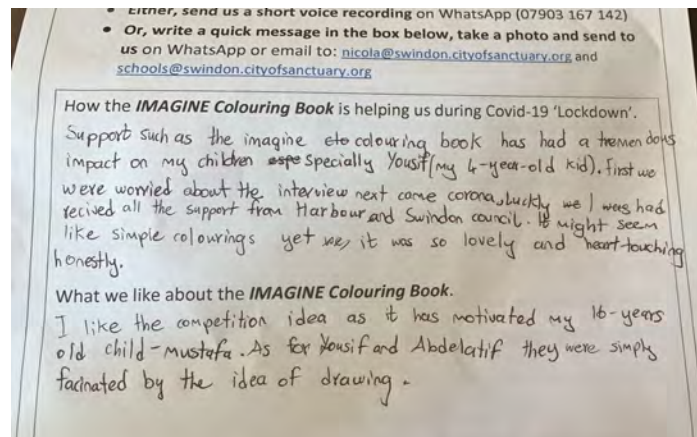 • Either, send us a short voice recording on WhatsApp (07903 167 142)
• Or, write a quick message in the box below, take a photo and send to
us on WhatsApp or email to: nicola@swindon.cityofsanctuary.org and
schools@swindon.cityofsanctuary.org
How the IMAGINE Colouring Book is helping us during Covid-19 'Lockdown'.
Support such as the imagine colouring book has had a tremendous
impact on my children especially Yousif (my 4-year-old kid). First we
were worried about the interview next came corona, luckily we had
recived all the support from Harbour and Swindon council. It might seem
like simple colourings yet it was so lovely and heart-touching
honestly.
What we like about the IMAGINE Colouring Book.
I like the competition idea as it has motivated my 16-years
old child-mustafa. As for Yousif and Abdelatif they were simply
facinated by the idea of drawing.